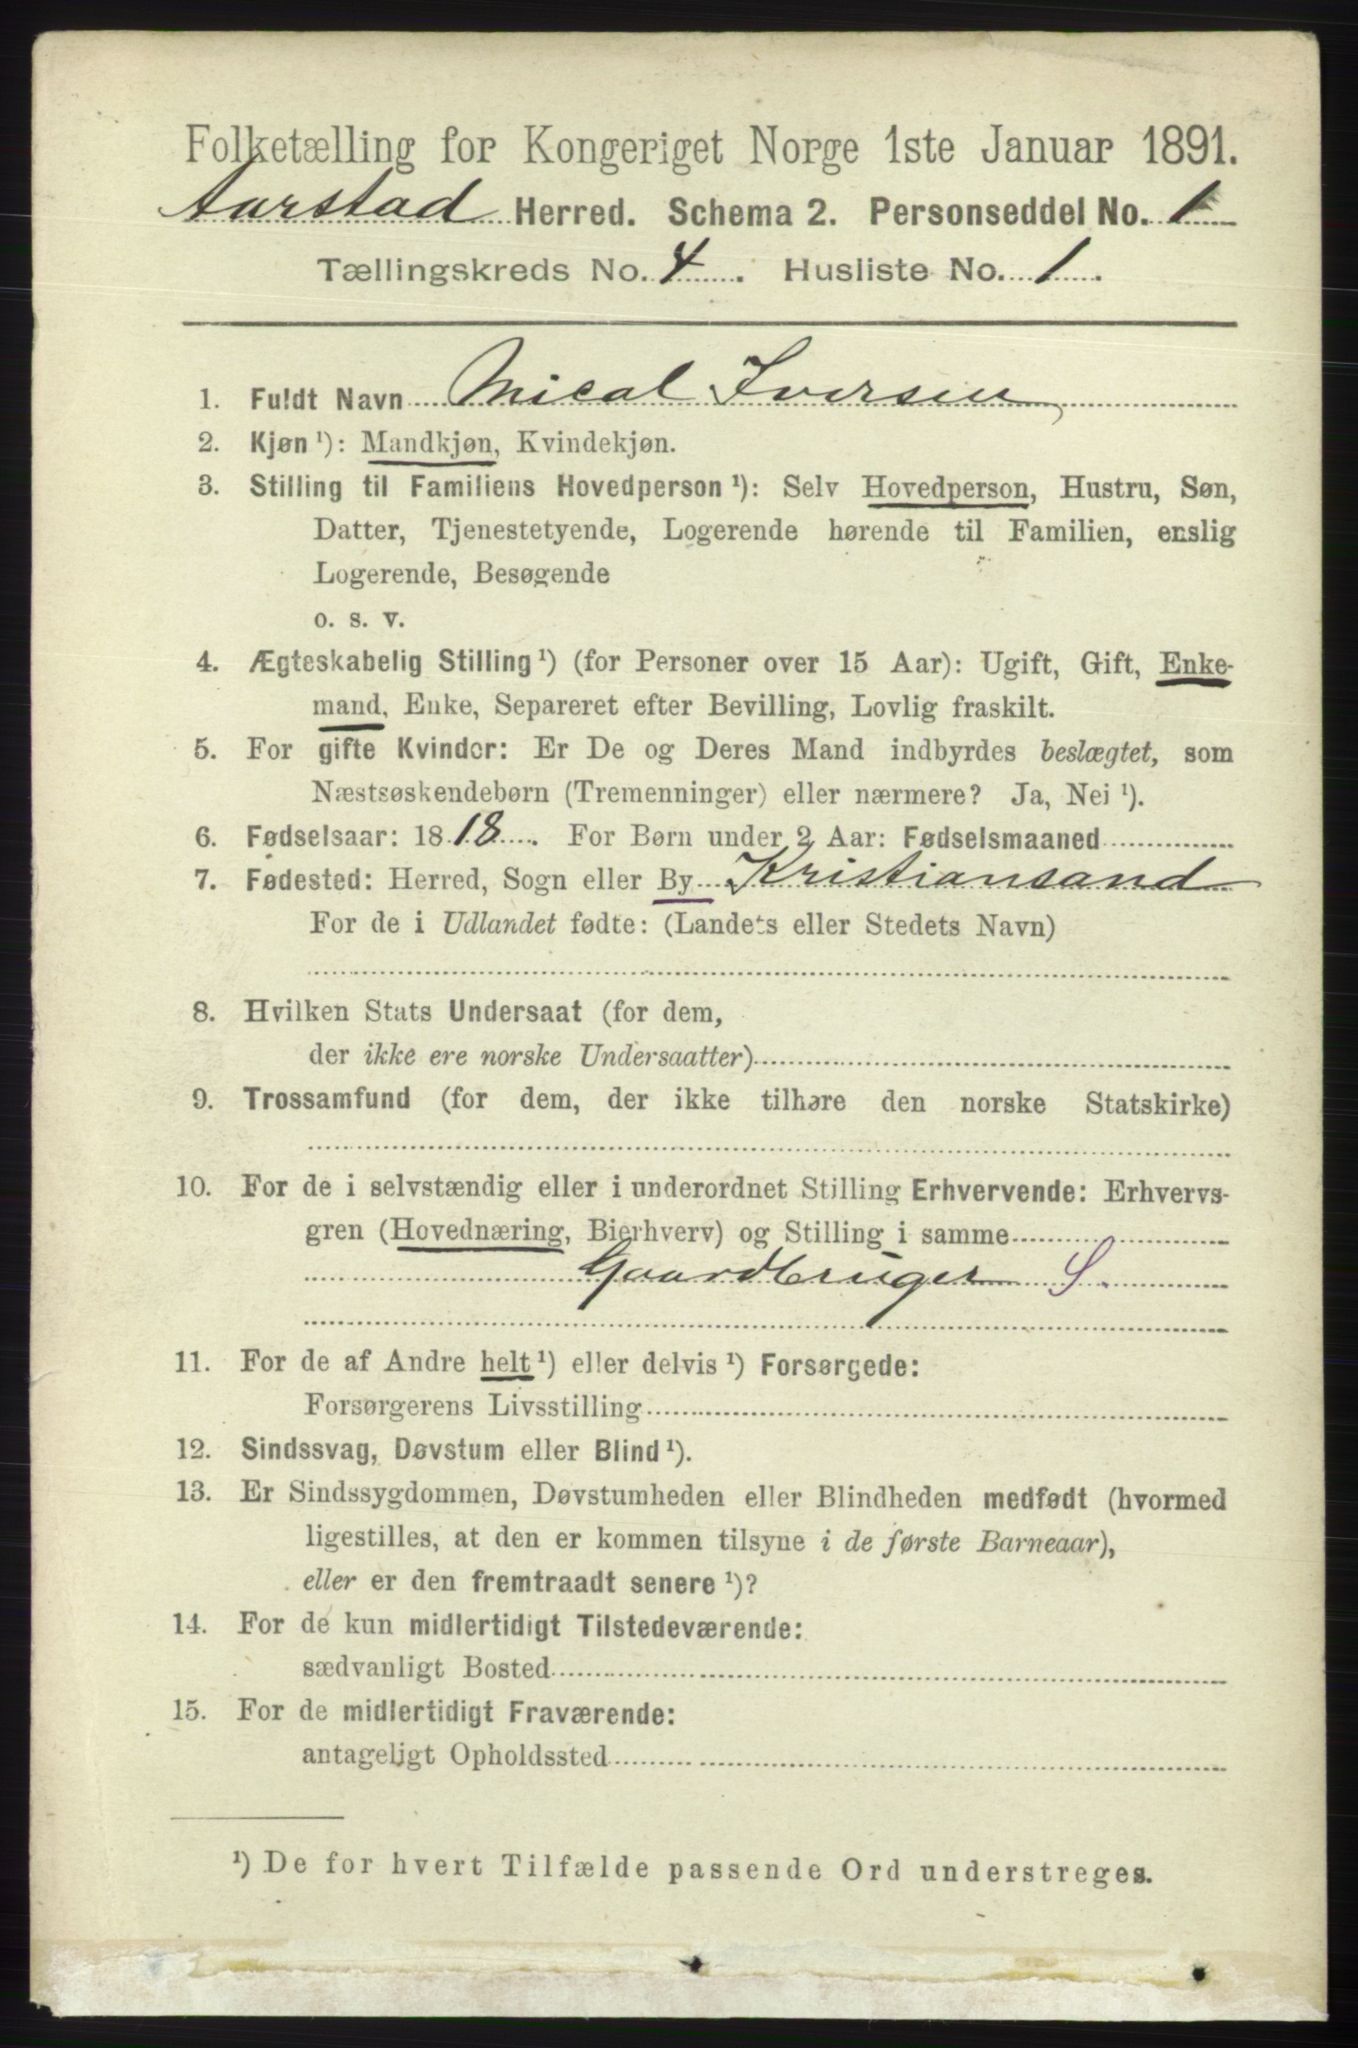 Folketælling for Kongeriget Norge 1ste Januar 1891.
Aarstad Herred. Schema 2. Personseddel No. 1
Tællingskreds No. 4. Husliste No. 1.
1. Fuldt Navn Mical Iversen,
2. Kjøn ¹): Mandkjøn, Kvindekjøn.
3. Stilling til Familiens Hovedperson ¹): Selv Hovedperson, Hustru, Søn,
Datter, Tjenestetyende, Logerende hørende til Familien, enslig
Logerende, Besøgende
o. s. v.
4. Ægteskabelig Stilling ¹) (for Personer over 15 Aar): Ugift, Gift, Enke-
mand, Enke, Separeret efter Bevilling, Lovlig fraskilt.
5. For gifte Kvinder: Er De og Deres Mand indbyrdes beslægtet, som
Næstsøskendebørn (Tremenninger) eller nærmere? Ja, Nei ¹).
6. Fødselsaar: 1818. For Børn under 2 Aar: Fødselsmaaned
7. Fødested: Herred, Sogn eller By Kristiansand
For de i Udlandet fødte: (Landets eller Stedets Navn)
8. Hvilken Stats Undersaat (for dem,
der ikke ere norske Undersaatter)
9. Trossamfund (for dem, der ikke tilhøre den norske Statskirke)
10. For de i selvstændig eller i underordnet Stilling Erhvervende: Erhvervs-
gren (Hovednæring, Bierhverv) og Stilling i samme
Gaardbruger S.
11. For de af Andre helt ¹) eller delvis ¹) Forsørgede:
Forsørgerens Livsstilling
12. Sindssvag, Døvstum eller Blind ¹).
13. Er Sindssygdommen, Døvstumheden eller Blindheden medfødt (hvormed
ligestilles, at den er kommen tilsyne i de første Barneaar),
eller er den fremtraadt senere ¹)?
14. For de kun midlertidigt Tilstedeværende:
sædvanligt Bosted
15. For de midlertidigt Fraværende:
antageligt Opholdssted
¹) De for hvert Tilfælde passende Ord understreges.